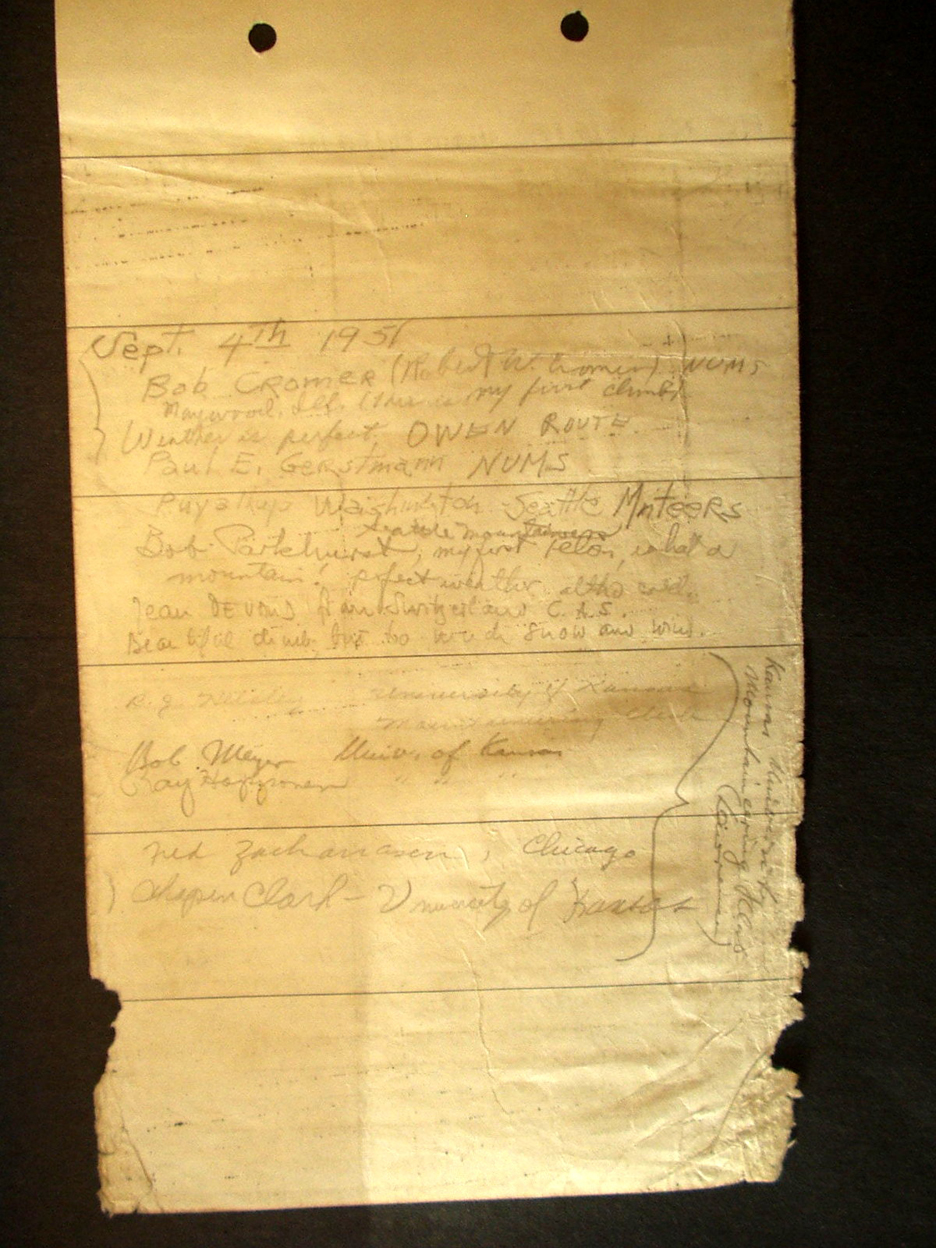 Sept. 4th 1951
Bob Cromer (Robert W. Cromer) NUMS
Maywood, Ill. (this is my first climb)
Weather is perfect. OWEN ROUTE.
Paul E. Gerstmann NUMS
Puyallup Washington Seattle Mnteers
Seattle Mountaineers
Bob Parkhurst, my first Teton, what a
mountain! perfect weather, altho cold.
Jean from Switzerland C.A.S.
Beautiful climb, but too much snow and wind.
University of Kansas
Mountaineering Club
Bob Meyer Univ. of Kansas
Ray " " "
Ned Zachariasen, Chicago
Chapin Clark - University of Kansas
Kansas University
Mountaineering Club